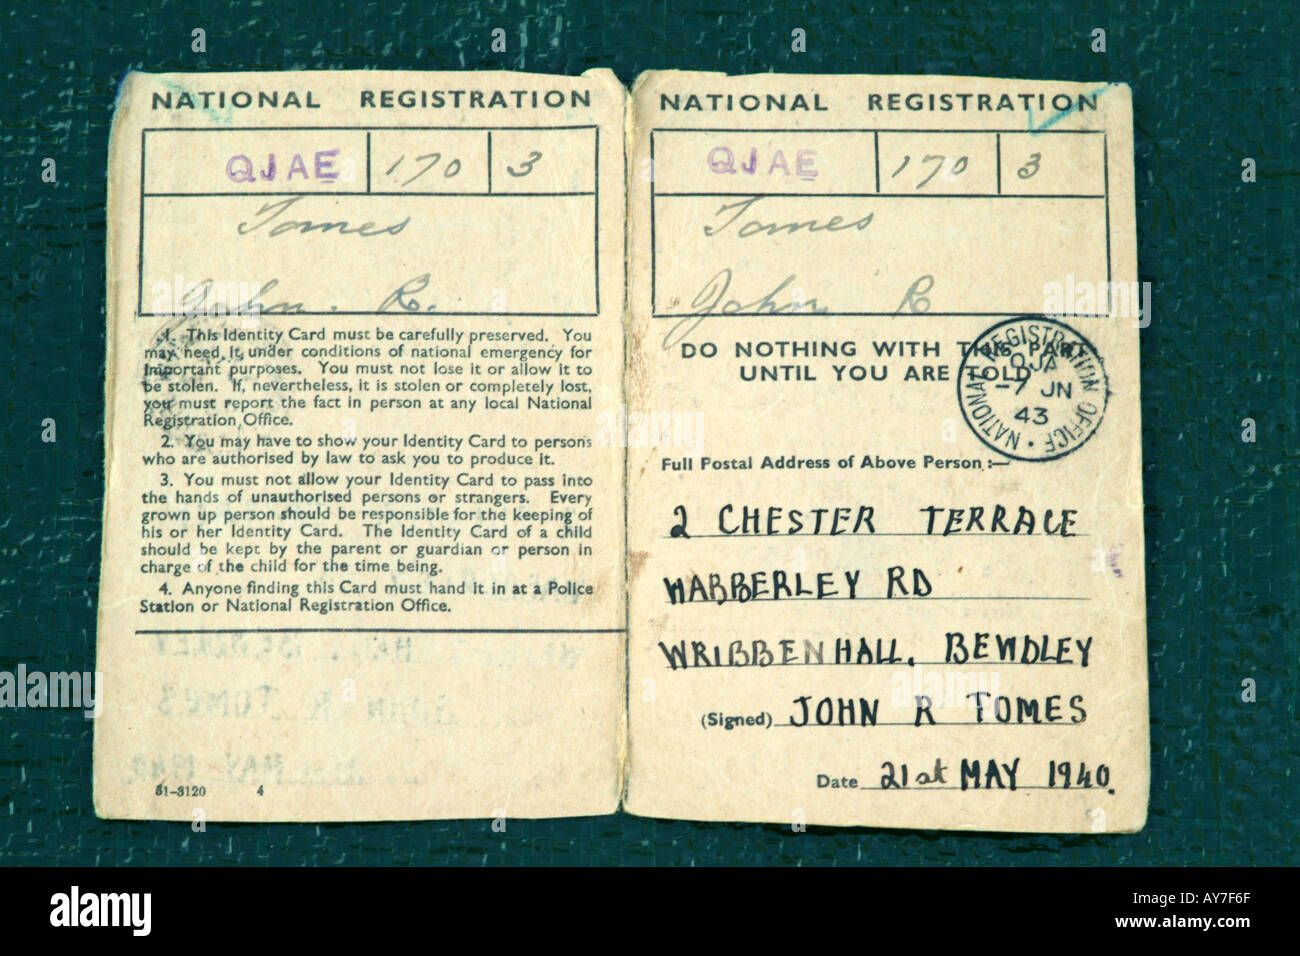 NATIONAL REGISTRATION
QJAE 170 3
Tomes
John. R.
1. This Identity Card must be carefully preserved. You
may need it under conditions of national emergency for
important purposes. You must not lose it or allow it to
be stolen. If, nevertheless, it is stolen or completely lost,
you must report the fact in person at any local National
Registration Office.
2. You may have to show your Identity Card to persons
who are authorised by law to ask you to produce it.
3. You must not allow your Identity Card to pass into
the hands of unauthorised persons or strangers. Every
grown up person should be responsible for the keeping of
his or her Identity Card. The Identity Card of a child
should be kept by the parent or guardian or person in
charge of the child for the time being.
4. Anyone finding this Card must hand it in at a Police
Station or National Registration Office.
51-3120 4
NATIONAL REGISTRATION
QJAE 170 3
Tomes
John R
DO NOTHING WITH THIS PART
UNTIL YOU ARE TOLD
NATIONAL REGISTRATION OFFICE
-7 JN
43
Full Postal Address of Above Person :—
2 CHESTER TERRACE
WABBERLEY RD
WRIBBENHALL. BEWDLEY
(Signed) JOHN R TOMES
Date 21st MAY 1940.
alamy
www.alamy.com
AY7F6F